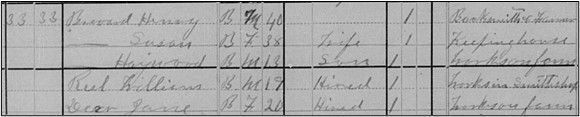 33 33 Brevard Henry B M 40 1 Blacksmith & Farmer
— Susan B F 38 Wife 1 Keeping house
— Haywood B M 13 Son 1 works on farm
Reel William B M 19 Hired 1 works in Smith shop
Jane B F 20 Hired 1 works on farm